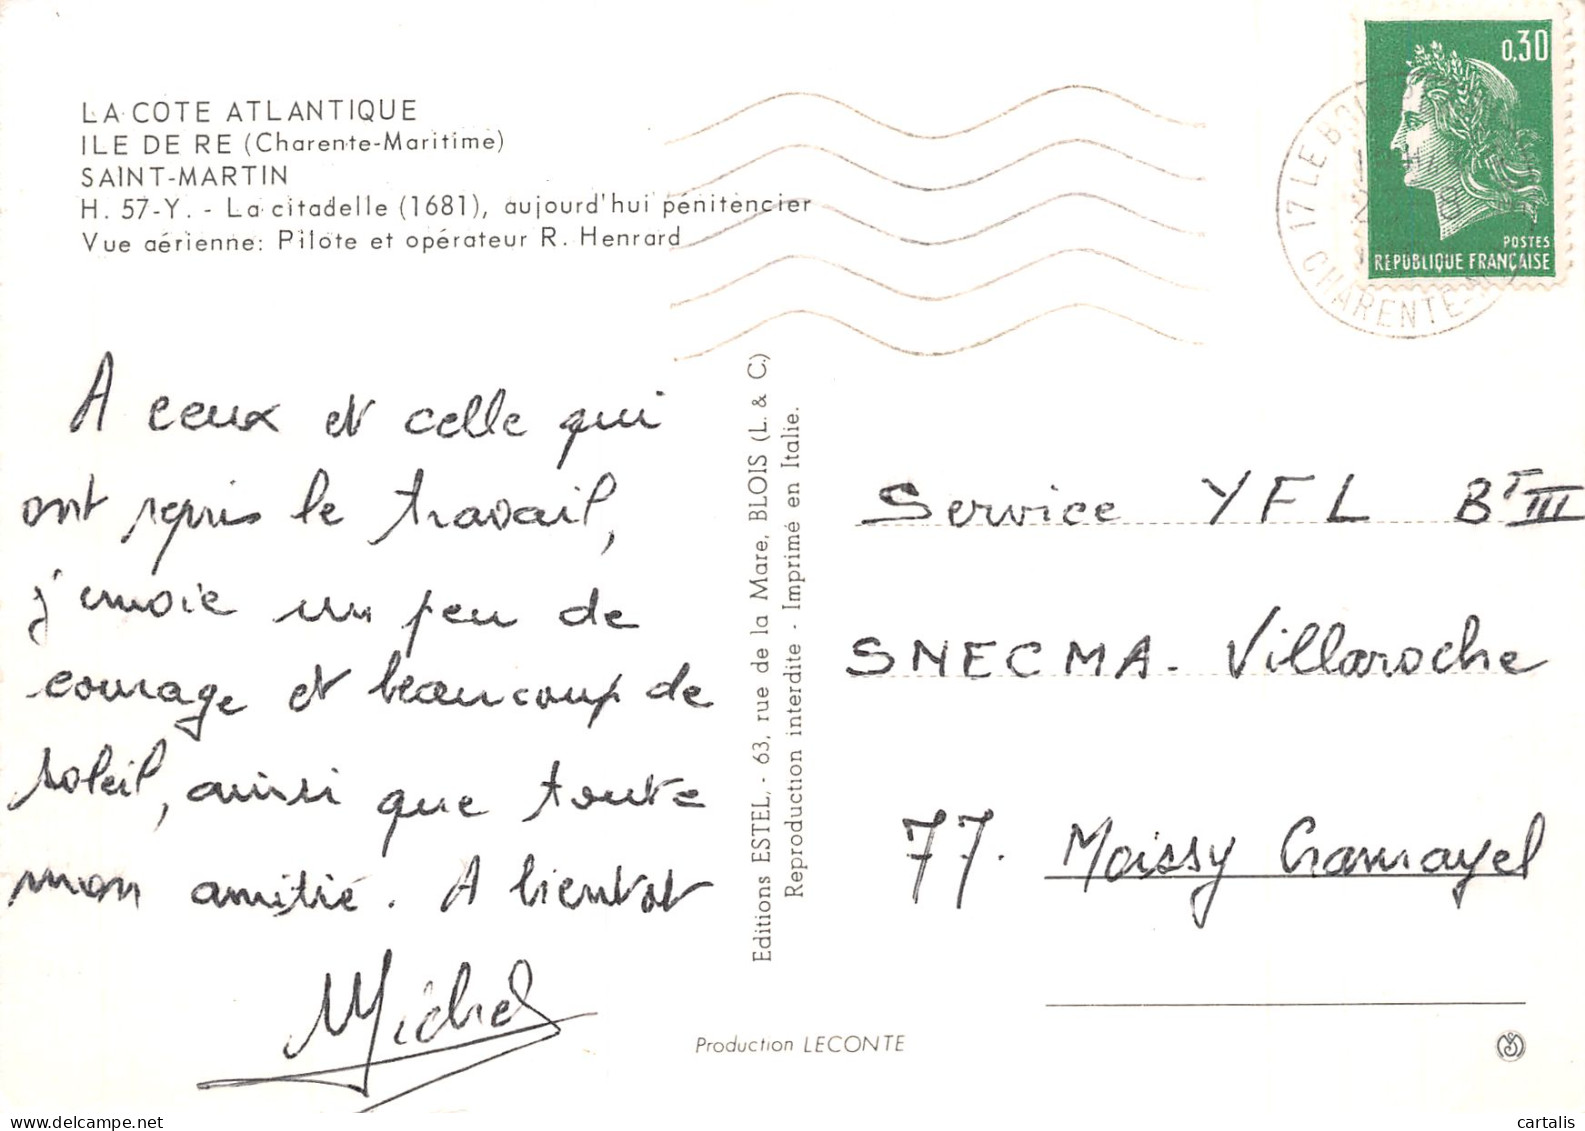 LA COTE ATLANTIQUE
ILE DE RE (Charente-Maritime)
SAINT-MARTIN
H. 57-Y. - La citadelle (1681), aujourd'hui pénitencier
Vue aérienne: Pilote et opérateur R. Henrard
0,30
POSTES
REPUBLIQUE FRANÇAISE
17 LE BOIS
CHARENTE-
A ceux et celle qui
ont repris le travail,
j'envoie un peu de
courage et beaucoup de
soleil, ainsi que toute
mon amitié. A bientot
Michel
Editions ESTEL, - 63, rue de la Mare, BLOIS (L. & C.)
Reproduction interdite - Imprimé en Italie.
Service YFL BT III
SNECMA - Villaroche
77. Moissy Cramayel
Production LECONTE
delcampe.net
cartalis